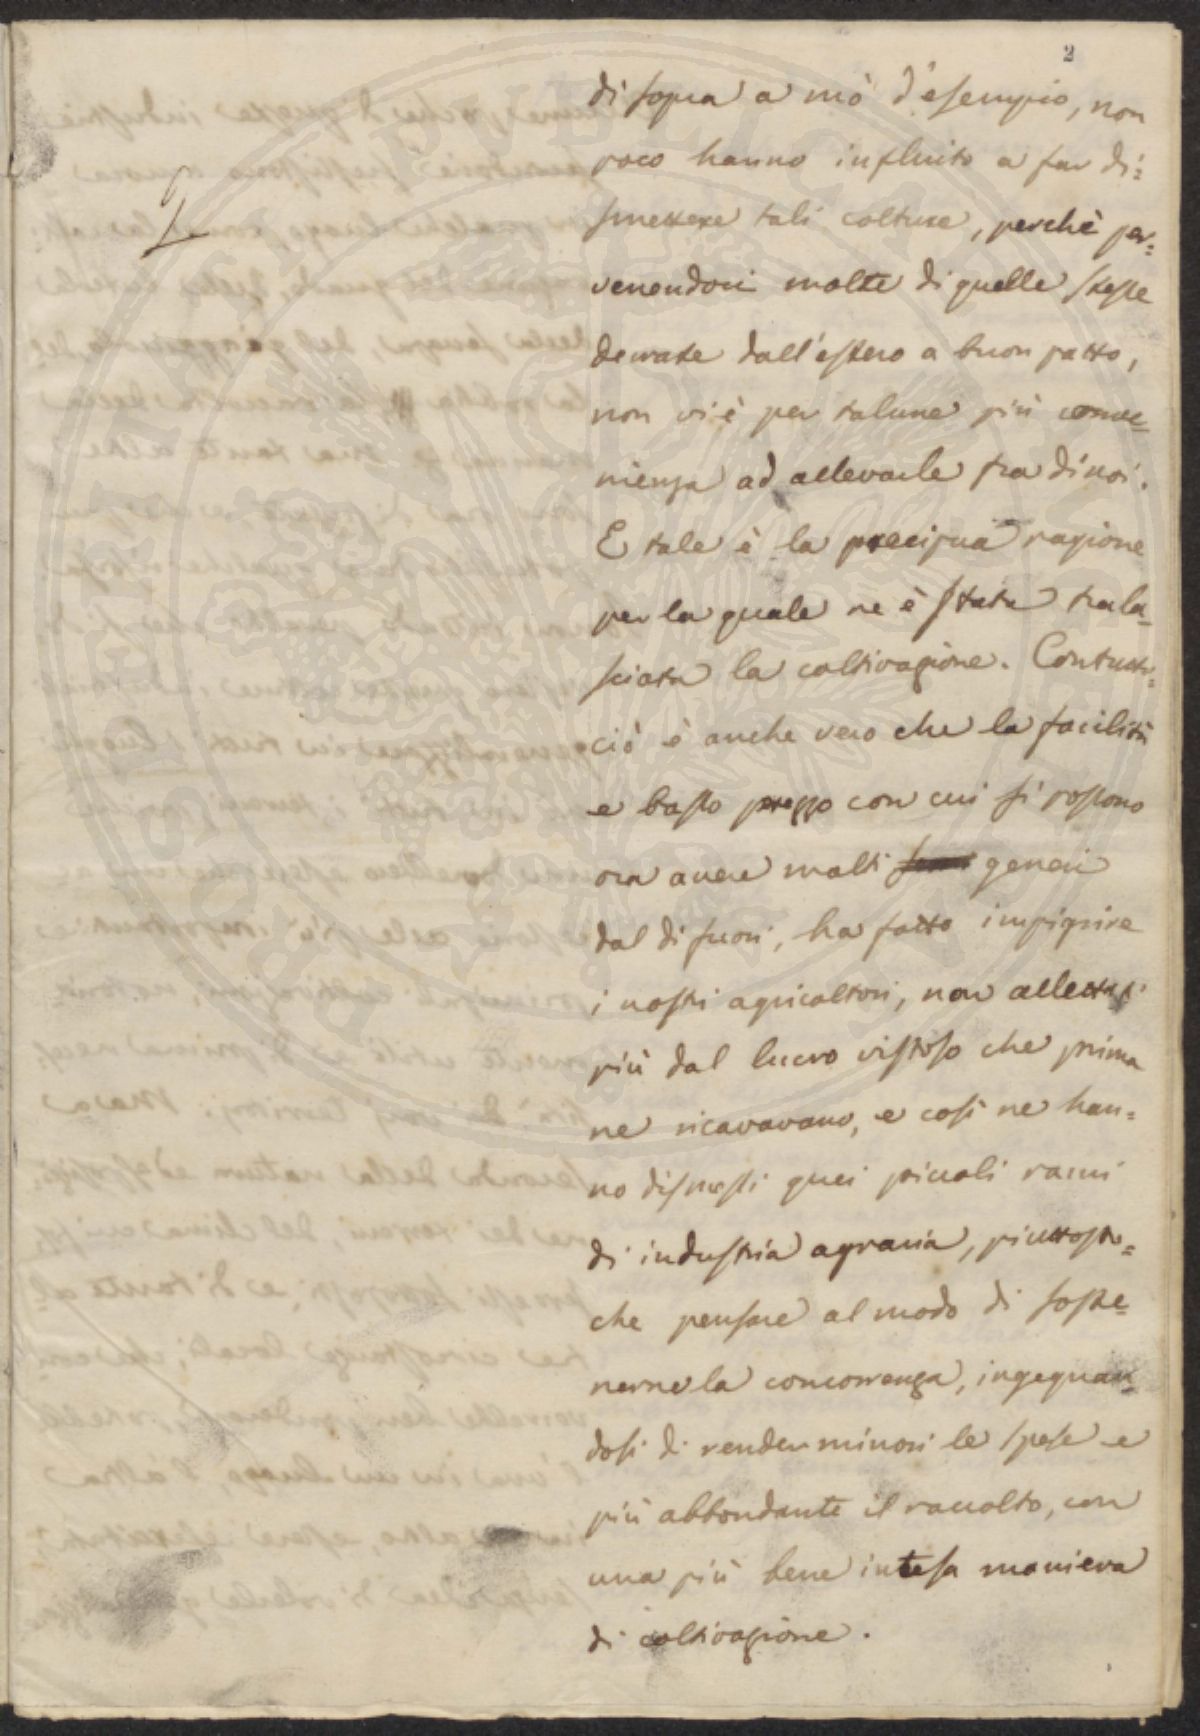 2
di sopra a mò d'esempio, non
poco hanno influito a far di=
smettere tali colture, perchè per=
venendoci molte di quelle stesse
derrate dall'estero a buon patto,
non vi è per talune più conve=
nienza ad allevarle fra di noi.
E tale è la precipua ragione
per la quale ne è stata trala=
sciata la coltivazione. Contutto=
ciò è anche vero che la facilità
e basso prezzo con cui si possono
ora avere molti generi
dal di fuori, ha fatto impigrire
i nostri agricoltori, non allettati
più dal lucro vistoso che prima
ne ricavavano, e così ne han=
no dismessi quei piccoli rami
di industria agraria, piuttosto=
che pensare al modo di soste=
nerne la concorrenza, ingegnan=
dosi di render minori le spese e
più abbondante il raccolto, con
una più bene intesa maniera
di coltivazione.